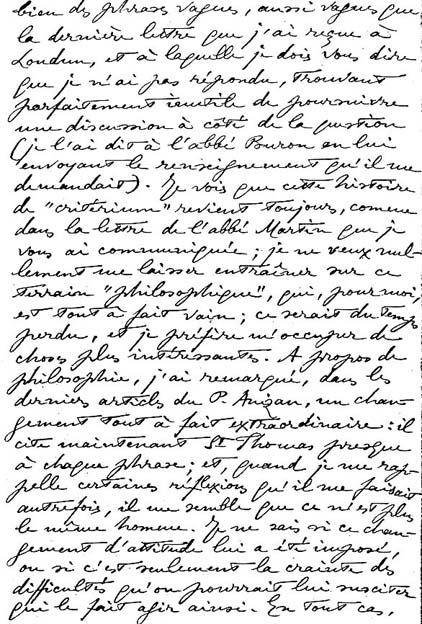 bien des phrases vagues, aussi vagues que
la dernière lettre que j'ai reçue à
Loudun, et à laquelle je dois vous dire
que je n'ai pas répondu, trouvant
parfaitement inutile de poursuivre
une discussion à côté de la question
(je l'ai dit à l'abbé Pouron en lui
envoyant le renseignement qu'il me
demandait). Je vois que cette histoire
de "critérium" revient toujours, comme
dans la lettre de l'abbé Martin que je
vous ai communiquée ; je ne veux nul-
lement me laisser entraîner sur ce
terrain "philosophique", qui, pour moi,
est tout à fait vain ; ce serait du temps
perdu, et je préfère m'occuper de
choses plus intéressantes. A propos de
philosophie, j'ai remarqué, dans les
derniers articles du P. Anizan, un chan-
gement tout à fait extraordinaire : il
cite maintenant St Thomas presque
à chaque phrase ; et, quand je me rap-
pelle certaines réflexions qu'il me faisait
autrefois, il me semble que ce n'est plus
le même homme. Je ne sais si ce chan-
gement d'attitude lui a été imposé,
ou si c'est seulement la crainte des
difficultés qu'on pourrait lui susciter
qui le fait agir ainsi. En tout cas,